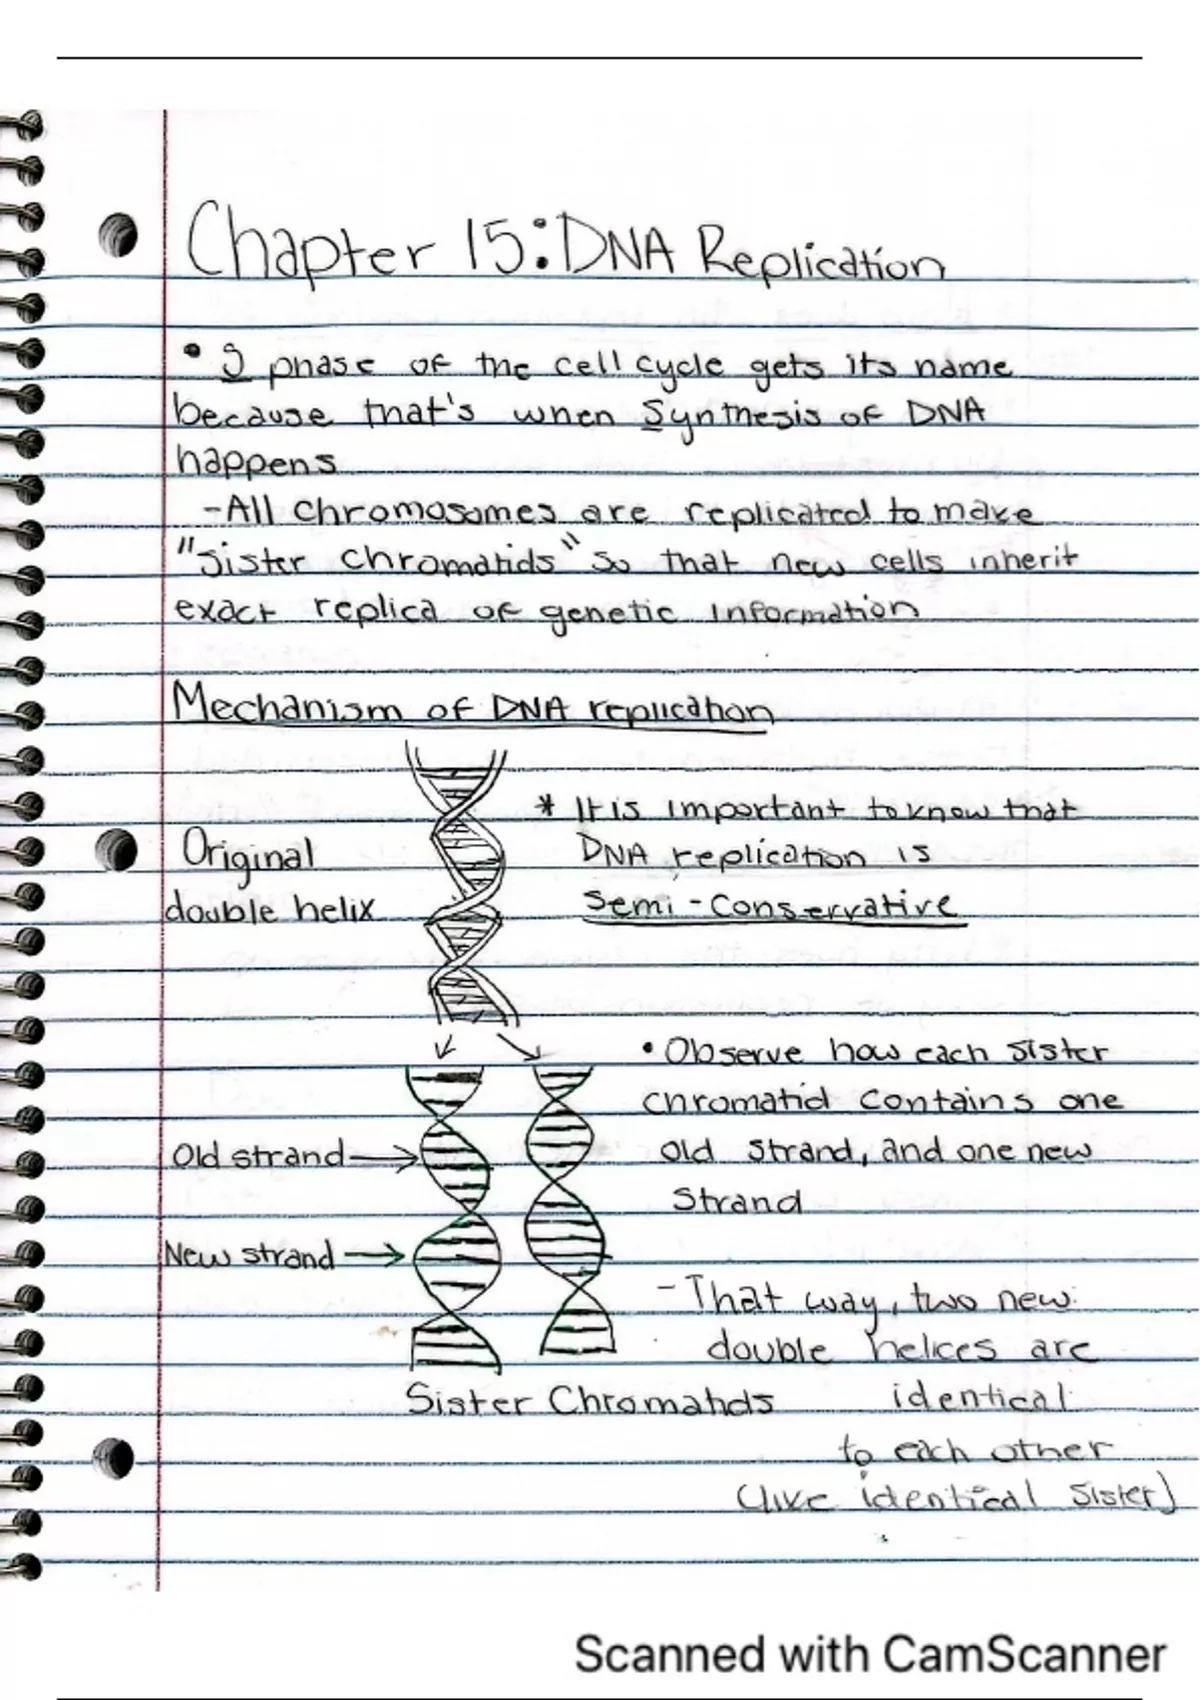 Chapter 15: DNA Replication
• S phase of the cell cycle gets its name
because that's when Synthesis of DNA
happens
-All chromosomes are replicated to make
"sister chromatids" so that new cells inherit
exact replica of genetic information
Mechanism of DNA replication
Original
double helix
* It is important to know that
DNA replication is
Semi-Conservative
• Observe how each sister
chromatid contains one
old strand, and one new
strand
Old strand
New strand
- That way, two new
double helices are
identical
to each other
(like identical sister)
Sister Chromatids
Scanned with CamScanner